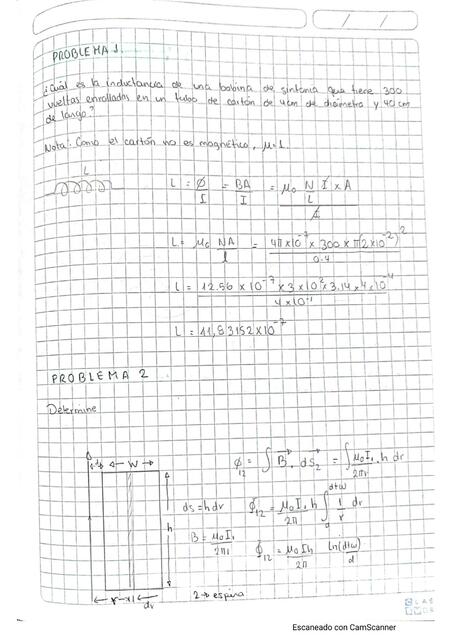 PROBLEMA 1.
¿Cuál es la inductancia de una bobina de sintonia que tiene 300
vueltas enrolladas en un tubo de cartón de 4cm de diámetro y 40 cm
de largo?
Nota: Como el cartón no es magnético, μ=1.
L
L = Ø/I = BA/I = μ₀ N/L I × A / I
L = μ₀ NA/l = 4π×10⁻⁷ × 300 × π(2×10⁻²)² / 0.4
L = 12.56 × 10⁻⁷ × 3 × 10² × 3.14 × 4 × 10⁻⁴ / 4 × 10⁻¹
L = 11,83152 × 10⁻⁷
PROBLEMA 2
Determine
d ← W →
h
ϕ₁₂ = ∫ B₁ · dS₂ = ∫ μ₀I₁/2πr · h dr
ds = h dr
ϕ₁₂ = μ₀I₁ h/2π ∫ d d+w 1/r dr
B = μ₀I₁/2π
ϕ₁₂ = μ₀Ih/2π ln(d+w)/d
← r → dr
2 → espira
Escaneado con CamScanner